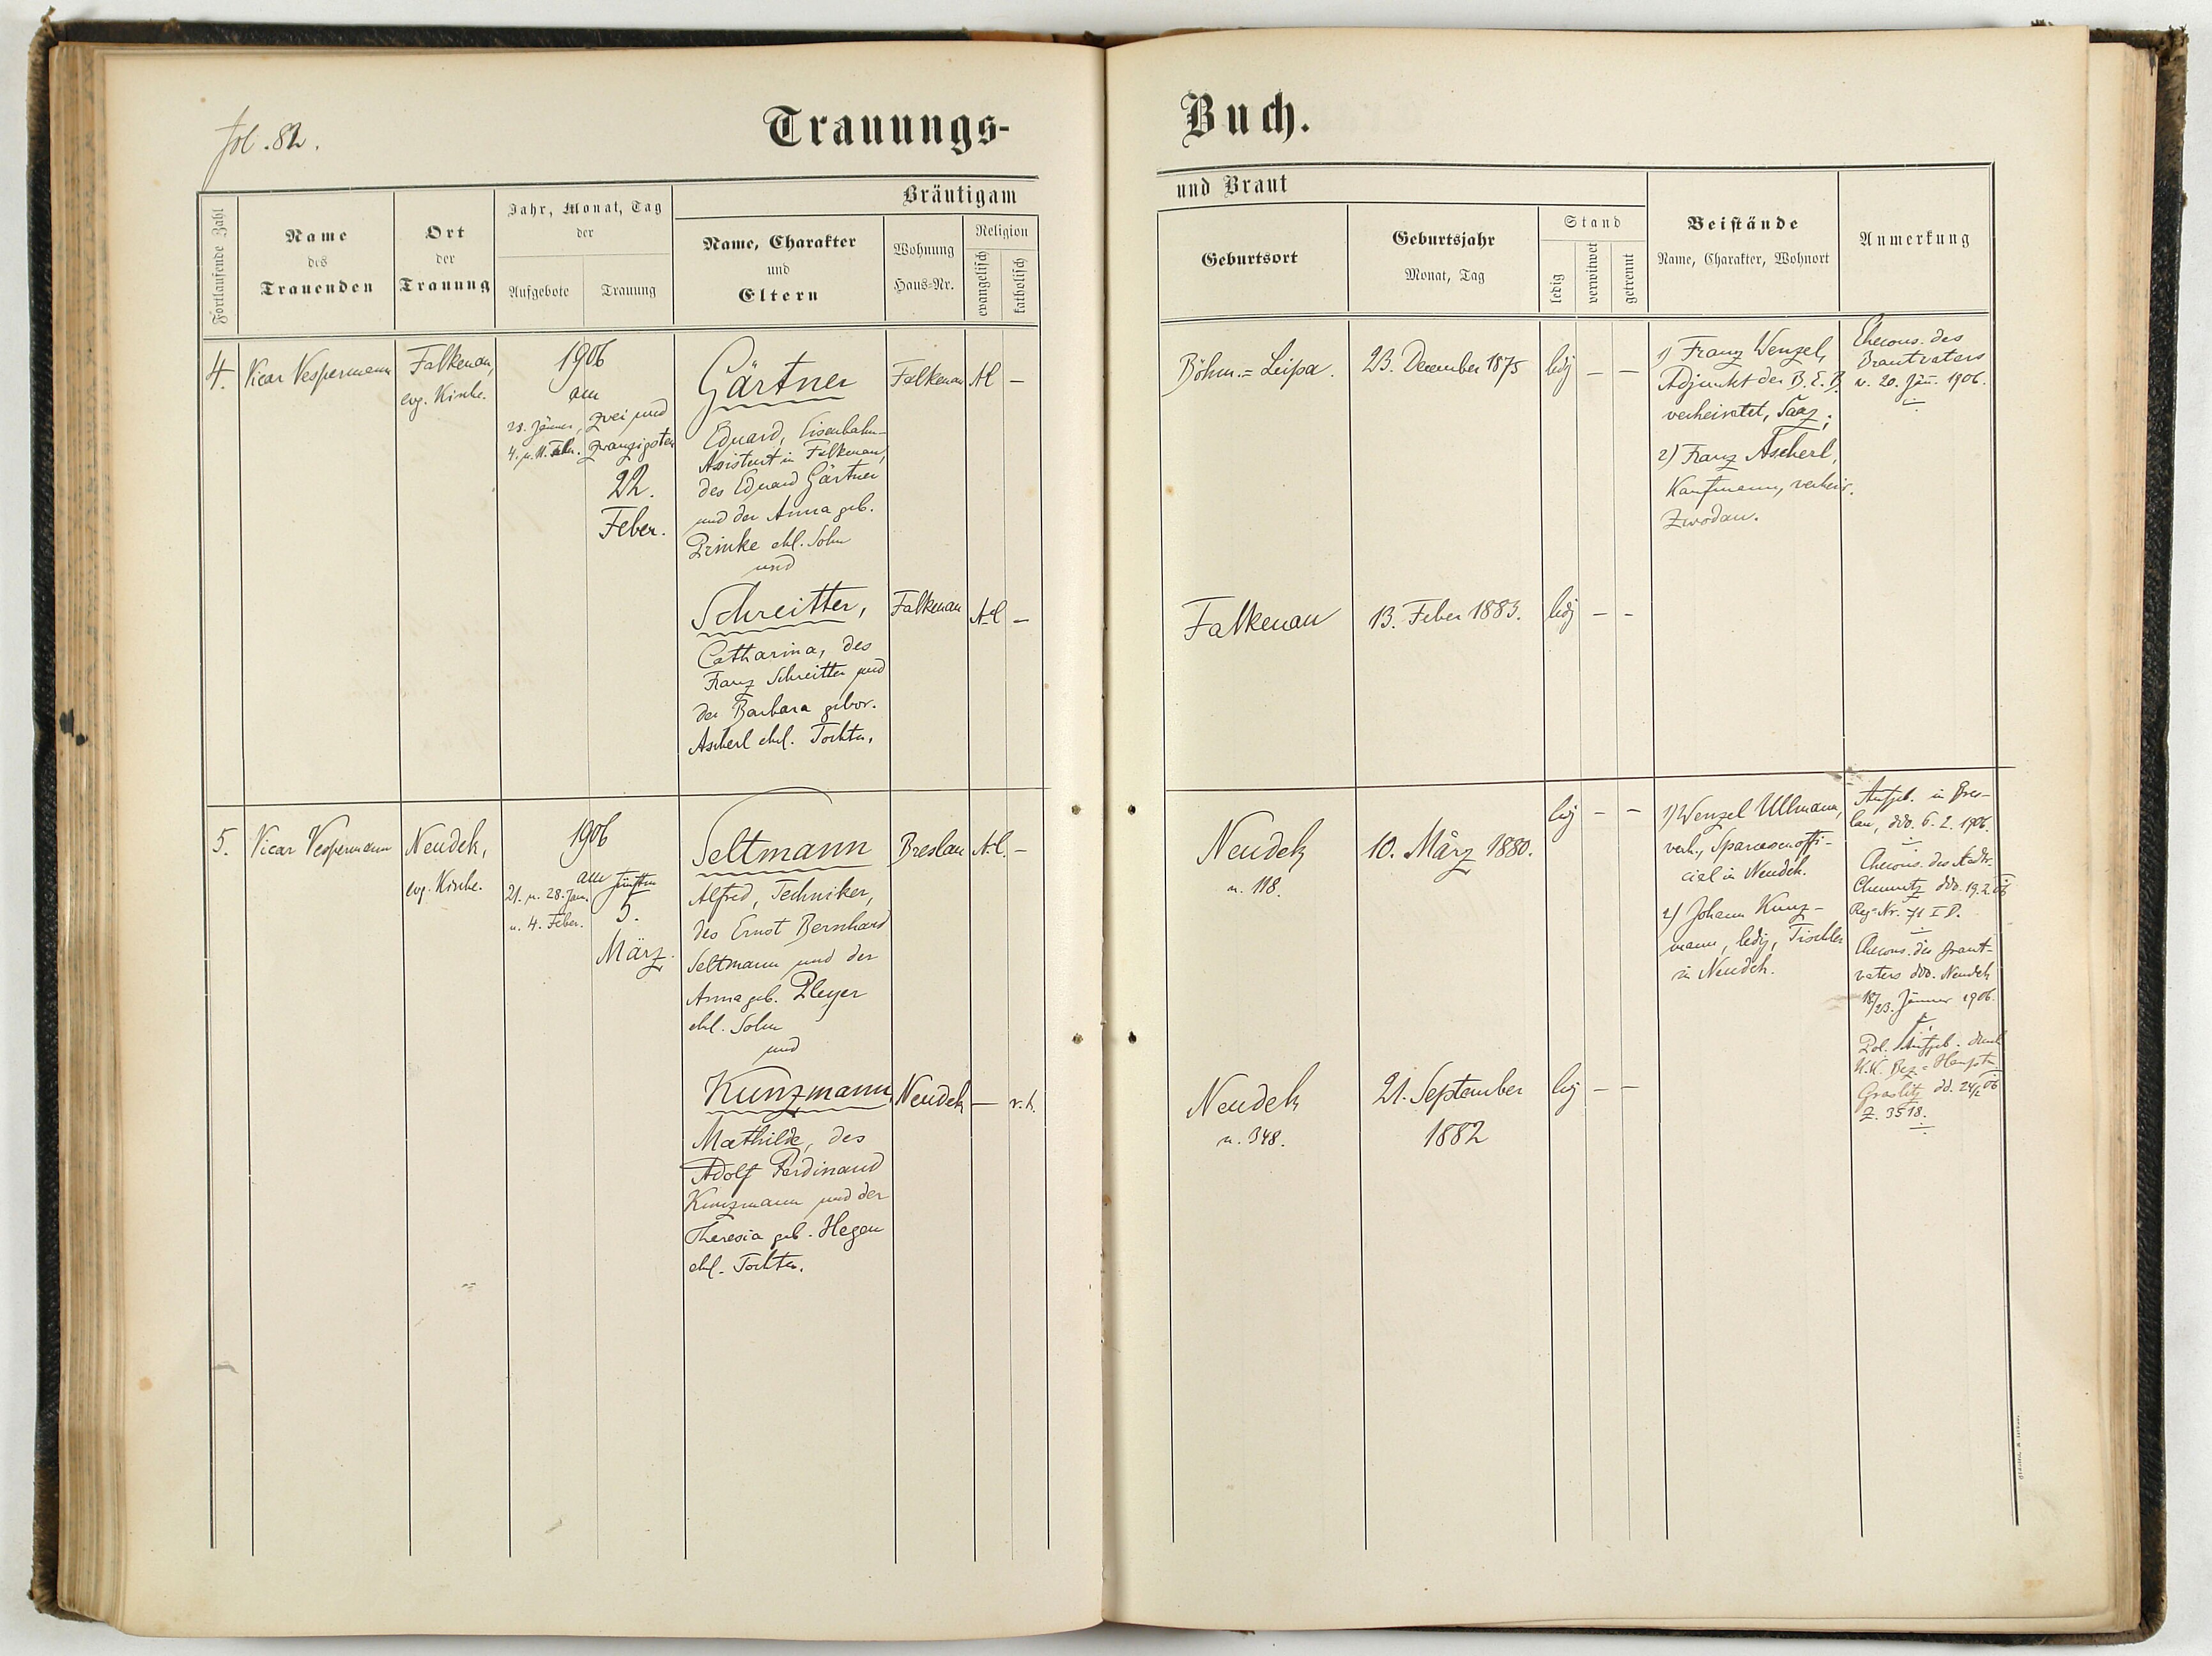 fol. 82.
Trauungs-
Buch.
Fortlaufende Zahl
Name
des
Trauenden
Ort
der
Trauung
Jahr, Monat, Tag
der
Aufgebote
Trauung
Bräutigam
Name, Charakter
und
Eltern
Wohnung
Haus-Nr.
Religion
evangelisch
katholisch
und Braut
Geburtsort
Geburtsjahr
Monat, Tag
Stand
ledig
verwitwet
getrennt
Beistände
Name, Charakter, Wohnort
Anmerkung
4.
Vicar Vespermann
Falkenau,
evg. Kirche.
1906
am
28. Jänner,
4. u. 11. Feber.
zwei und
zwanzigsten
22.
Feber.
Gärtner
Eduard, Eisenbahn-
Assistent in Falkenau,
des Eduard Gärtner
und der Anna geb.
Prinke ehl. Sohn
und
Falkenau
A.C. —
Schreitter,
Catharina, des
Franz Schreitter und
der Barbara gebor.
Ascherl ehel. Tochter.
Falkenau
A.C. —
Böhm.=Leipa.
23. December 1875
ledig — —
Falkenau
13. Feber 1883.
ledig — —
1) Franz Wenzel,
Adjunkt der B. E. B.
verheiratet, Saaz;
2) Franz Ascherl,
Kaufmann, verheir.
Zwodau.
Ehecons. des
Brautvaters
v. 20. Jän. 1906.
5.
Vicar Vespermann
Neudek,
evg. Kirche.
1906
am
21. u. 28. Jan.
u. 4. Feber.
fünften
5.
März.
Seltmann
Alfred, Techniker,
des Ernst Bernhard
Seltmann und der
Anna geb. Pleyer
ehl. Sohn
und
Breslau
A.C. —
Kunzmann,
Mathilde, des
Adolf Ferdinand
Kunzmann und der
Theresia geb. Hegen
ehl. Tochter.
Neudek
— r. k.
Neudek
n. 118.
10. März 1880.
ledig — —
Neudek
n. 348.
21. September
1882
ledig — —
1) Wenzel Ullmann,
verh., Sparcassenoffi-
cial in Neudek.
2) Johann Kunz-
mann, ledig, Tischler
in Neudek.
Aufgeb. in Bres-
lau, ddo. 6. 2. 1906.
Ehecons. des Stadtr.
Chemnitz ddo. 19.2.06
Reg.-Nr. 71 I D.
Ehecons. des Braut-
vaters ddo. Neudek
18/23. Jänner 1906.
Pol. Aufgeb. durch
k.k. Bez.-Hauptm.
Graslitz dd. 24/2 06
Z. 3518.